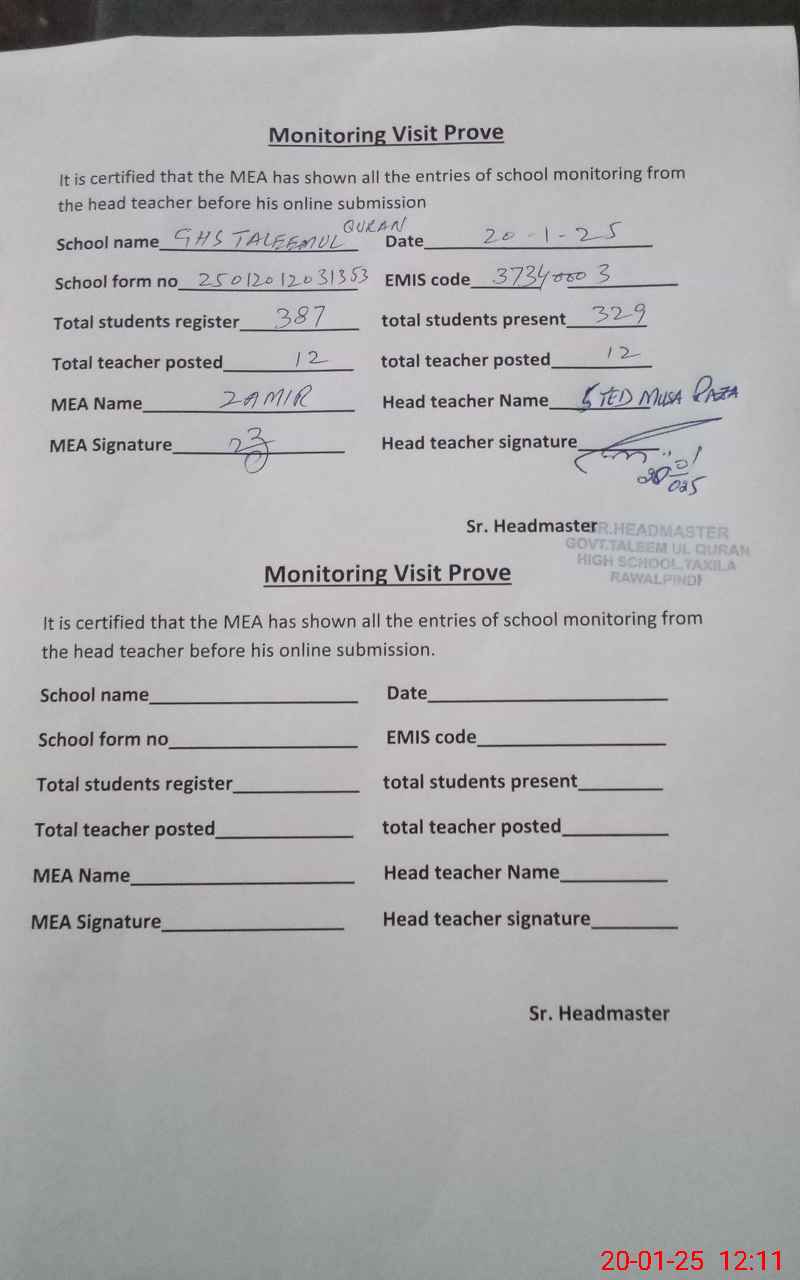 Monitoring Visit Prove
It is certified that the MEA has shown all the entries of school monitoring from
the head teacher before his online submission
School name GHS TALEEMUL QURAN Date 20-1-25
School form no 25012012031353 EMIS code 37340003
Total students register 387 total students present 329
Total teacher posted 12 total teacher posted 12
MEA Name ZAMIR Head teacher Name SYED MUSA RAZA
MEA Signature Head teacher signature
Sr. Headmaster
SR.HEADMASTER
GOVT.TALEEM UL QURAN
HIGH SCHOOL,TAXILA
RAWALPINDI
Monitoring Visit Prove
It is certified that the MEA has shown all the entries of school monitoring from
the head teacher before his online submission.
School name Date
School form no EMIS code
Total students register total students present
Total teacher posted total teacher posted
MEA Name Head teacher Name
MEA Signature Head teacher signature
Sr. Headmaster
20-01-25 12:11